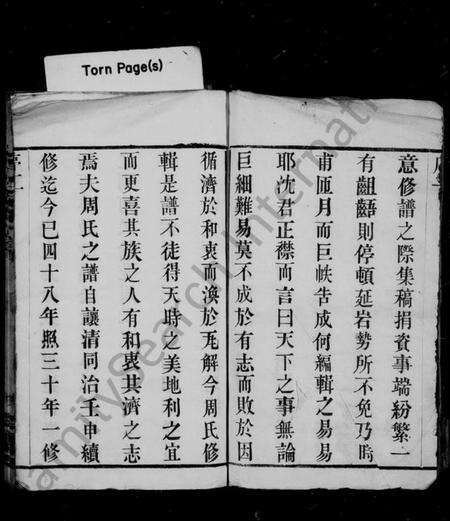 Torn Page(s)
意修譜之際集稿捐資事端紛繁一
有齟齬則停頓延岩勢所不免乃時
甫匝月而巨帙告成何編輯之易易
耶沈君正襟而言曰天下之事無論
巨細難易莫不成於有志而敗於因
循濟於和衷而渙於瓦解今周氏修
輯是譜不徒得天時之美地利之宜
而更喜其族之人有和衷其濟之志
焉夫周氏之譜自讓清同治壬申續
修迄今已四十八年照三十年一修
FamilySearch International